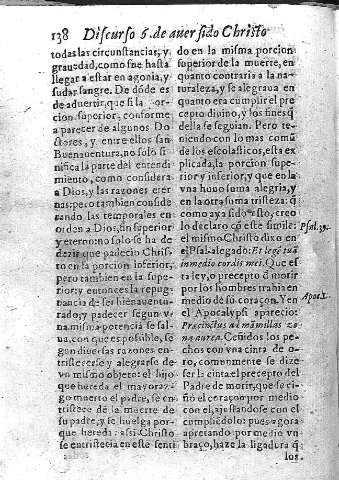 138 Discurso 5. de aver sido Christo
todas las circunstancias, y
gravedad, como fue hasta
llegar a estar en agonia, y
sudar sangre. De dóde es
de advertir, que si la por-
cion superior, conforme
a parecer de algunos Do
ctores, y entre ellos san
Buenaventura, no solo si
nifica la parte del entendi
miento, como considera
a Dios, y las razones eter
nas; pero tambien conside
rando las temporales en
orden a Dios, ũn superior
y eterno: no solo se ha de
dezir que padecio Chris-
to en la porcion inferior,
pero tambien en la supe-
rior: y entonces la repug-
nancia de ser bienaventu-
rado, y padecer segun v-
na misma potencia se sal-
va, con que es posible, se
gun diversas razones en-
tristecerse y alegrarse de
vn mismo objeto: el hijo
que hereda el mayoraz-
go muerto el padre, se en-
tristece de la muerte de
su padre, y se huelga por-
que hereda: assi Christo
se entristecia en este senti
do en la misma porcion
superior de la muerte, en
quanto contraria a la na-
turaleza, y se alegrava en
quanto era cumplir el pre
cepto divino, y los fines q̃
della se seguian. Pero te-
niendo con lo mas comũ
de los escolasticos, esta ex
plicada, la porcion supe-
rior y inferior, y que en la
vna huvo suma alegria, y
en la otra suma tristeza: q̃
como aya sido esto, creo
lo declaro cõ este simile:
el mismo Christo dixo en
el Psal. alegado: Et legẽ tuã
in medio cordis mei. Que es
ta ley, o precepto d morir
por los hombres trahia en
medio de su coraçon. Y en
el Apocalypsi aparecio:
Precinctus ad mamillas zo
na aurea. Ceñidos los pe-
chos con vna cinta de o-
ro, comunmente se dize
ser la cinta el precepto del
Padre de morir, que se ci-
ñio el coraçon por medio
con el, ajustandose con el
cumpliendolo: pues agora
apretando por medio vn
braço, haze la ligadura q̃
los
Psal. 39.
Apoc. 1.